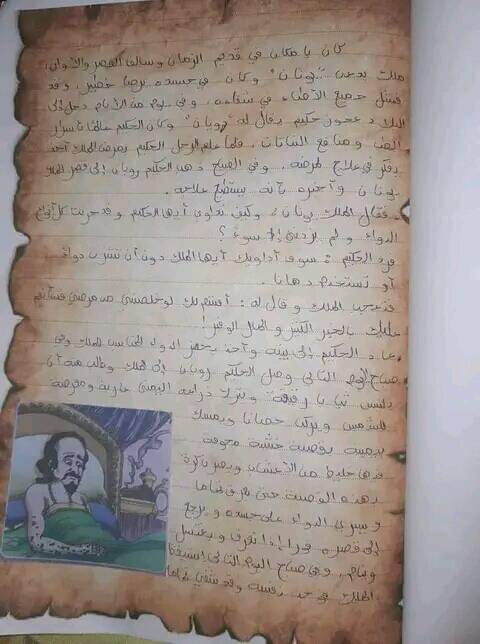 كان يا مكان في قديم الزمان وسالف العصر والأوان،
ملك يدعى "يونان" وكان في جسده برصا خطير، وقد
فشل جميع الأطباء في شفاءه، وفي يوم من الأيام دخل إلى
البلاد عجوز حكيم يقال له "رويان" وكان الحكيم عالما بأسرار
الطب ومنافع النباتات، فلما علم الرجل الحكيم بمرض الملك أخذ
يفكر في علاج لمرضه، وفي الصباح ذهب الحكيم رويان إلى قصر الملك
يونان وأخبره بأنه يستطيع علاجه.
فقال الملك يونان: وكيف تداوي أيها الحكيم وقد جربت كل أنواع
الدواء ولم يزدني إلا سوءً؟
فرد الحكيم: سوف أداويك أيها الملك دون أن تشرب دواءً
أو تستخدم دهانا.
فتعجب الملك وقال له: أقسم لك لو خلصتني من مرضي فسأنعم
عليك بالخير الكثير والمال الوفير!
عاد الحكيم إلى بيته وأخذ يحضر الدواء المناسب للملك وفي
صباح اليوم التالي وصل الحكيم رويان إلى الملك وطلب منه أن
يلبس ثيابا رقيقة وتترك ذراعه اليمنى عارية ومعرضة
للشمس ويركب حصانا ويمسك
بيمينه بقصبة خشبة مجوفة
فيها خليط من الأعشاب ويضرب كرة
بهذه القصبة حتى يعرق تماما
ويسري الدواء على جسده ويرجع
إلى قصره فورا إذا تعرق ويغتسل
وينام، وفي صباح اليوم التالي استيقظ
الملك فوجد نفسه وقد شفي تماما